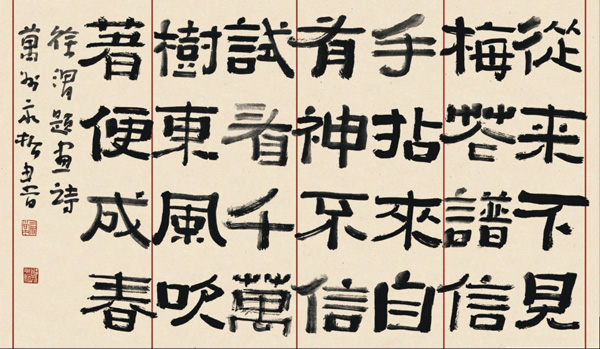 從来不見
梅花譜信
手拈來自
有神不信
試看千萬
樹東風吹
著便成春
徐渭題画詩
萬州永松